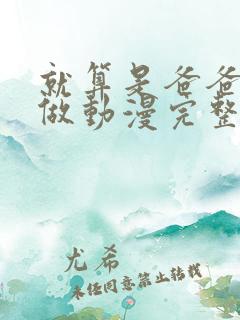 就算是爸爸
做動漫完整
尤希
未经同意禁止转载